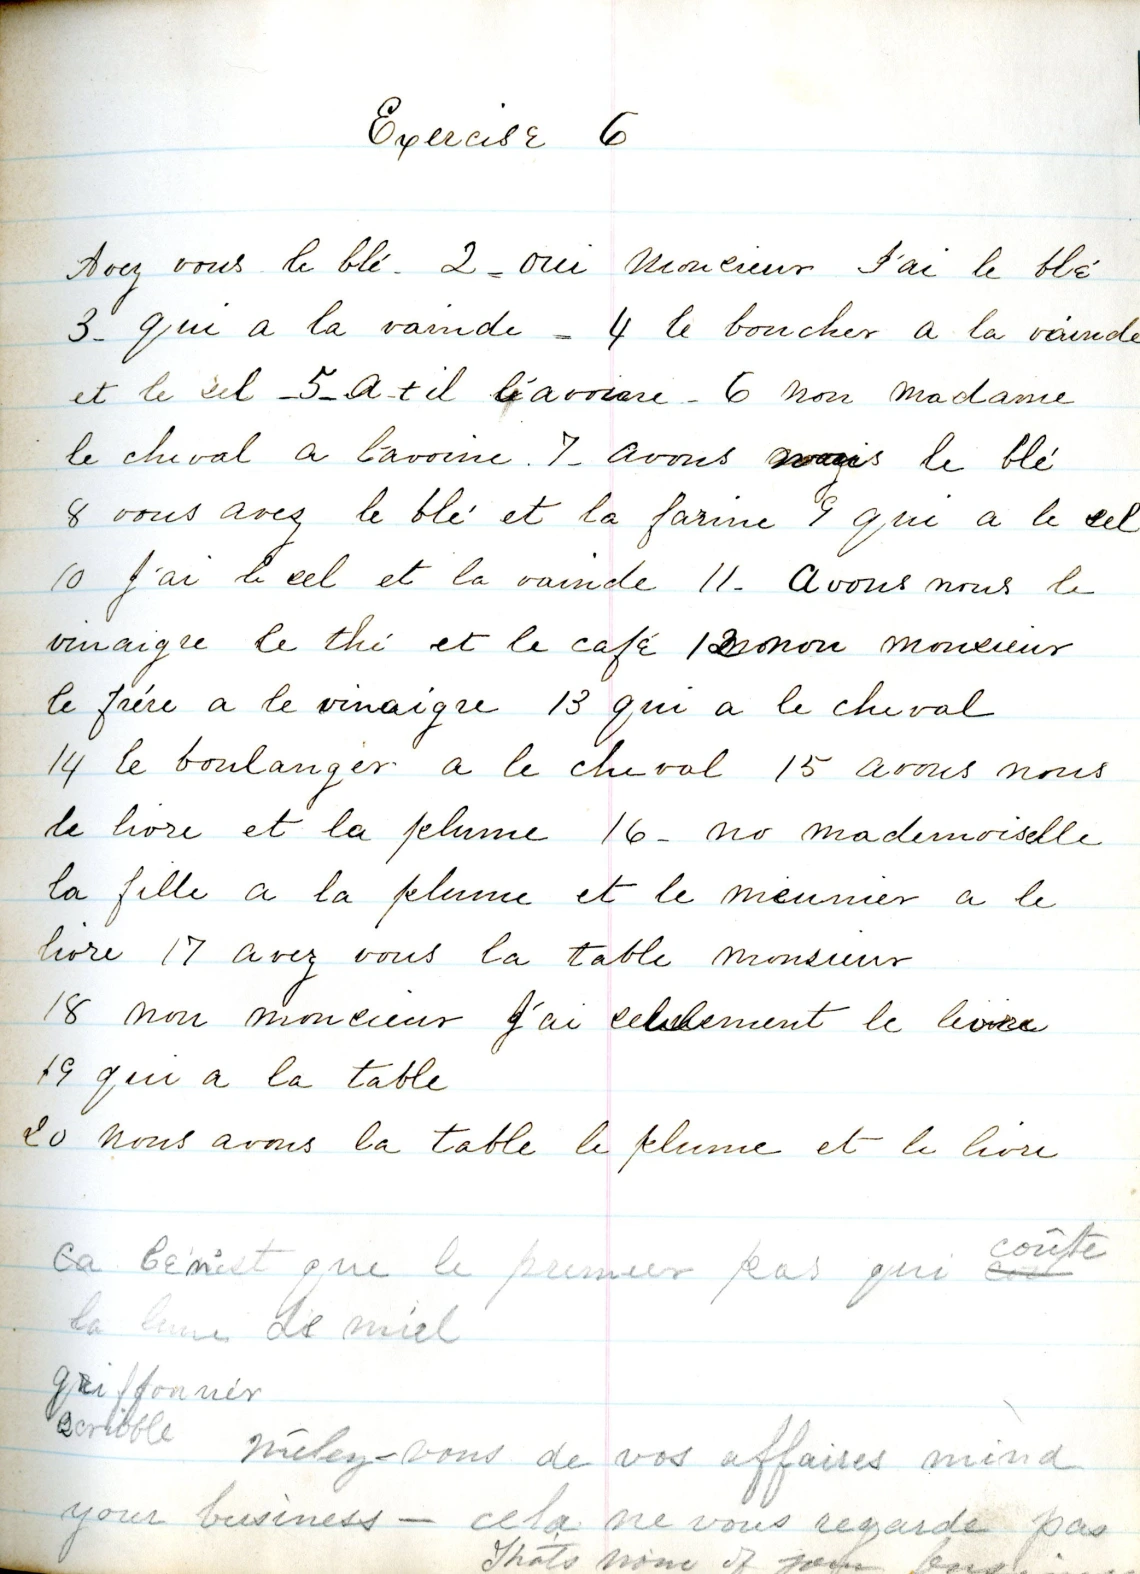 Exercise 6
Avez vous le blé. 2 - oui moncieur J'ai le blé
3 - qui a la vainde - 4 le boucher a la vainde
et le sel - 5 - a-t il l'avoine - 6 non madame
le cheval a l'avoine. 7 - avons le blé
8 vous avez le blé et la farine 9 qui a le sel
10 j'ai le sel et la vainde 11 - avons nous le
vinaigre le thé et le café 12 non moncieur
le frére a le vinaigre 13 qui a le cheval
14 le boulanger a le cheval 15 avons nous
le livre et la plume 16 - no mademoiselle
la fille a la plume et le meunier a le
livre 17 avez vous la table monsieur
18 non moncieur j'ai le livre
19 qui a la table
20 nous avons la table le plume et le livre
Ca n'est que le premier pas qui coûte
la lune de miel
griffonner
scribble
mêlez-vous de vos affaires mind
your business — cela ne vous regarde pas
Thats none of your